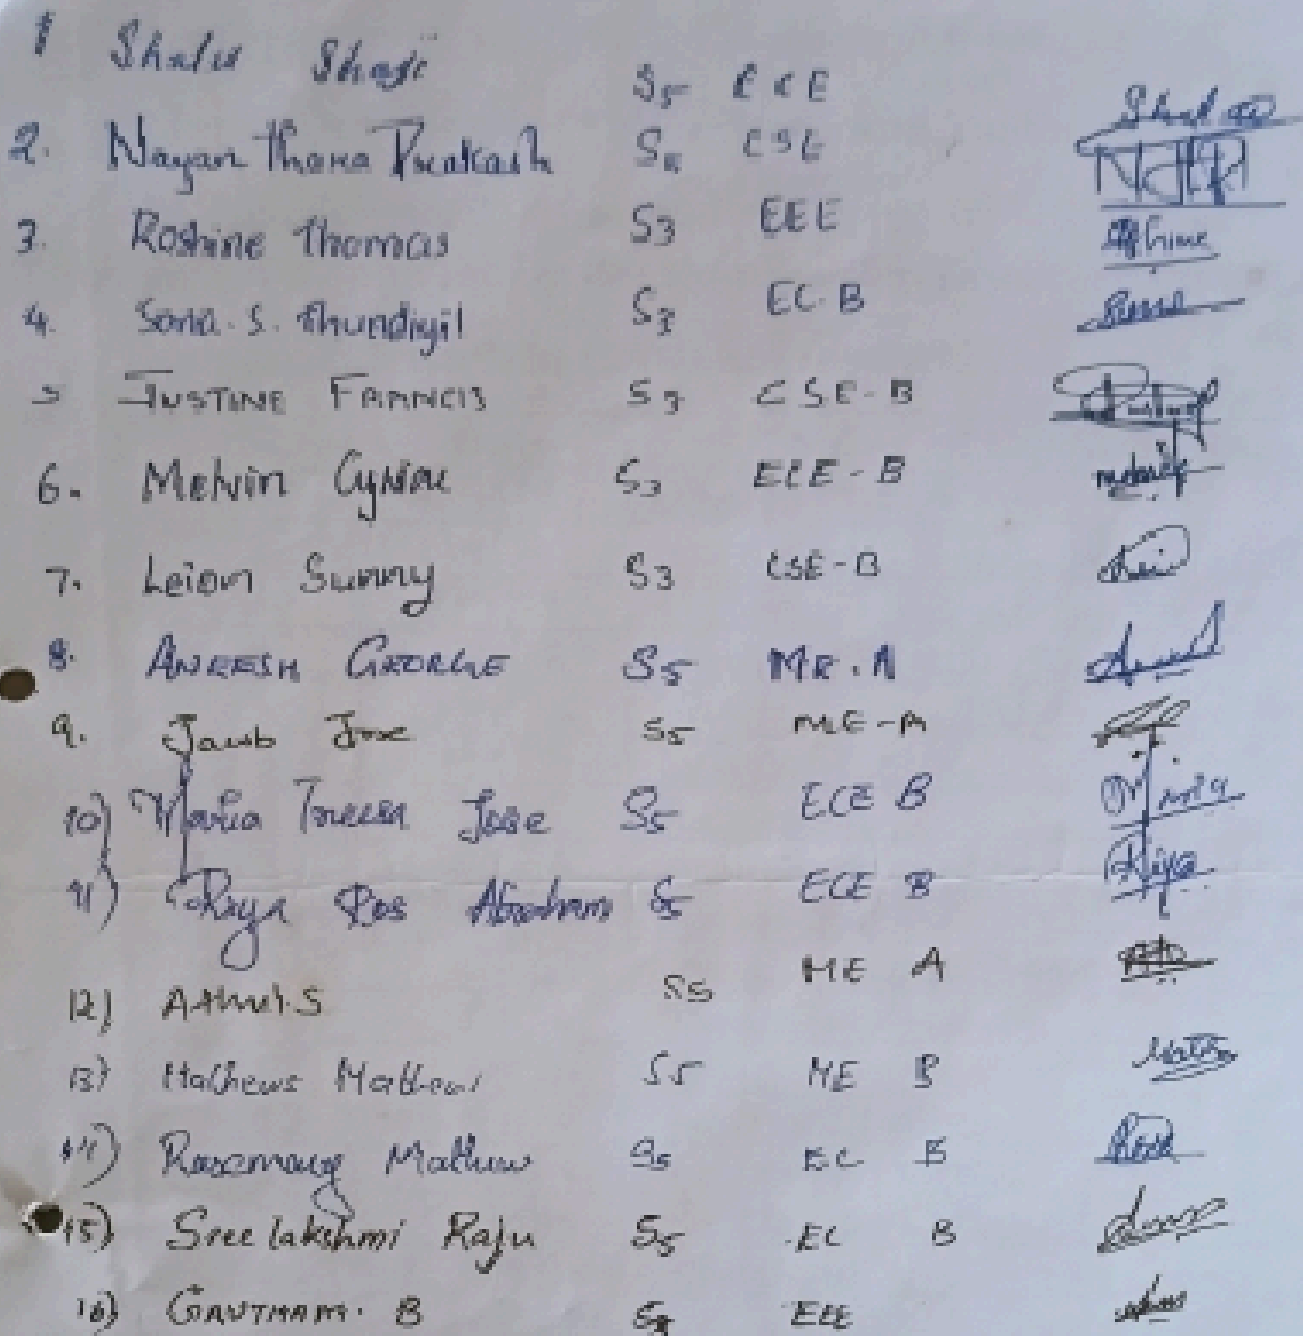 1 Shalu Shaji S5 ECE
2. Nayanthara Prakash S5 CSE
3. Roshine Thomas S3 EEE
4. Sona. S. Thundiyil S3 EC-B
5 JUSTINE FRANCIS S3 CSE-B
6. Melvin Cyriac S3 ECE-B
7. Leion Sunny S3 CSE-B
8. ANEESH GEORGE S5 ME.A
9. Jacob Jose S5 ME-A
10) Maria Treesa Jose S5 ECE B Maria
11) Riya Ros Abraham S5 ECE B Riya
12) Athul.S S5 ME A
13) Mathews Mathew S5 ME B
14) Rosemary Mathew S5 EC B
15) Sreelakshmi Raju S5 EC B
16) GAUTHAM. B EEE